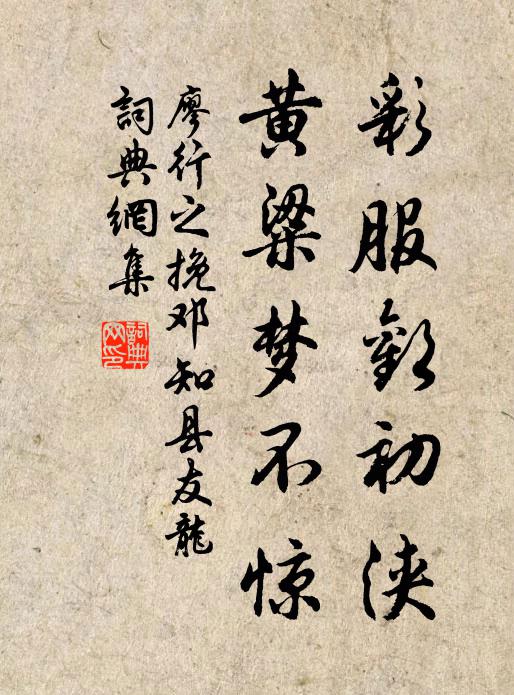 彩服歡初浹
黄粱梦不惊
廖行之挽邓知县友龍
詞典網集
詞典网印